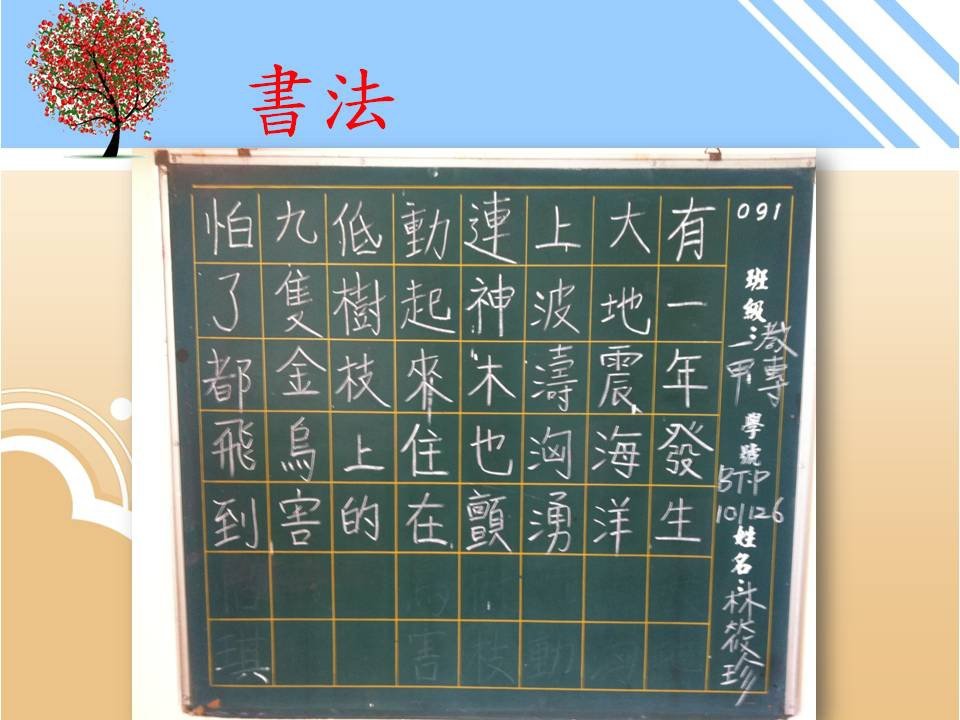 書法
091
班級：教專二甲
學號 BTP101126
姓名：林筱珍
有一年發生
大地震海洋
上波濤洶湧
連神木也顫
動起來住在
低樹枝上的
九隻金烏害
怕了都飛到